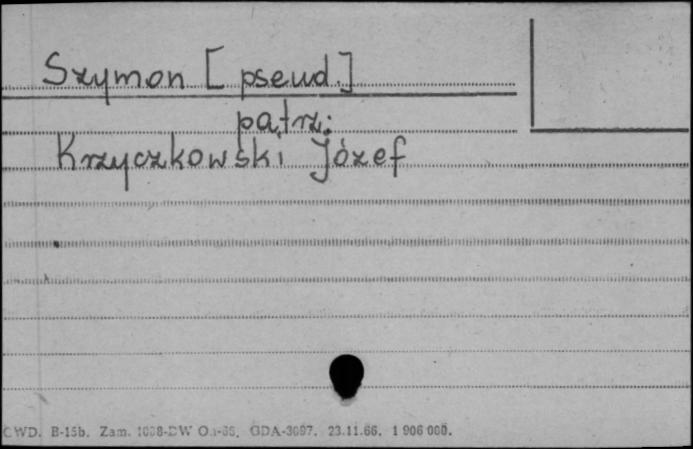 Szymon [pseud.]
patrz:
Krzyczkowski Józef
CWD. B-15b. Zam. GDA-3097. 23.11.66. 1 906 000.